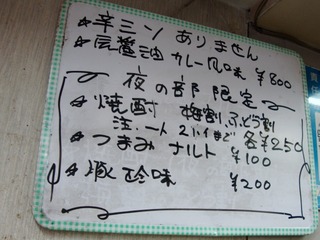 ☆辛ミソ ありません
☆辰醤油 カレー風味 ¥800
夜の部限定
☆焼酎 梅割 ぶどう割
注. 一人2ハイほど 各¥250
☆つまみ ナルト ¥100
☆豚珍味 ¥200
責
任